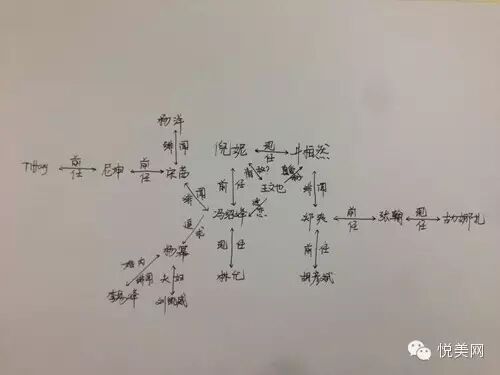 杨洋
绯 闻
Tiffany 前任 尼坤 前任 宋茜
倪妮 现任 井柏然
王文也
绯闻
前任
绯闻
冯绍峰
郑爽 前任 张翰 现任 古力娜扎
追求
现任
前任
杨幂
绯闻
夫妇
李易峰
刘恺威
林允
胡彦斌
悦美网